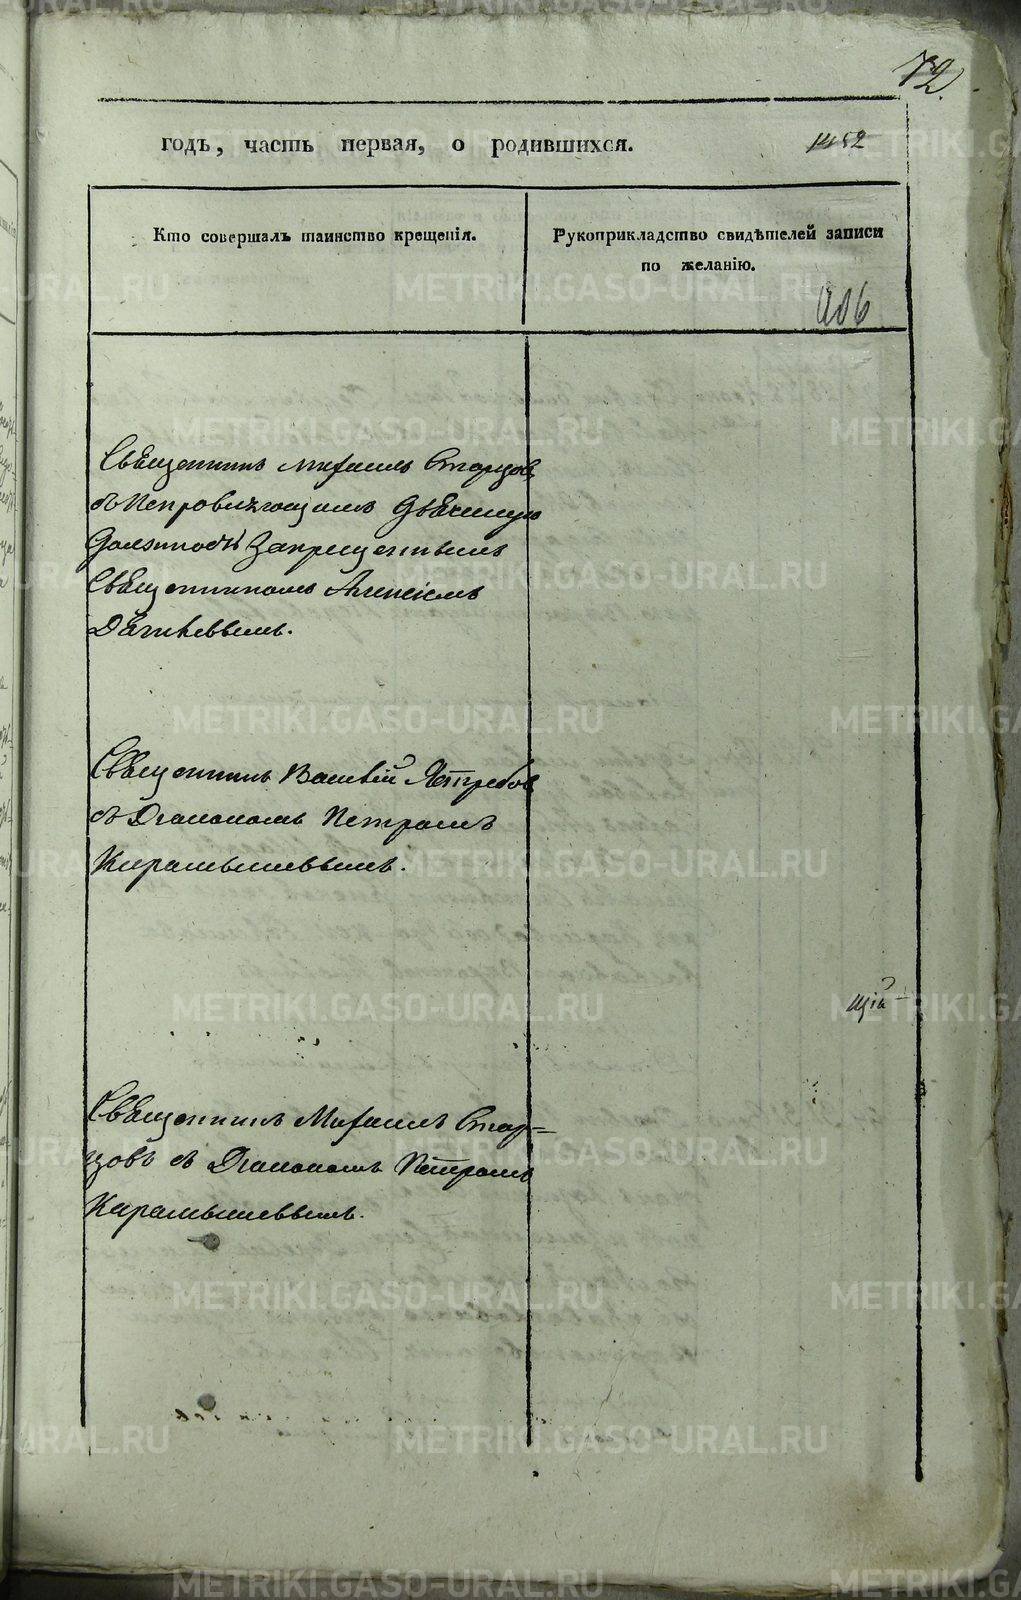 72
годъ, часть первая, о родившихся.
1452
Кто совершалъ таинство крещенія.
Рукоприкладство свидѣтелей записи
по желанію.
406
Священникъ Михаилъ Старцовъ
съ исправляющимъ дьячецкую
должность запрещеннымъ
Священникомъ Алексіемъ
Священникъ Василій Ястребовъ
съ Діакономъ Петромъ
Карамышевымъ.
щій
Священникъ Михаилъ Стар-
цовъ съ Діакономъ Петромъ
Карамышевымъ.
METRIKI.GASO-URAL.RU